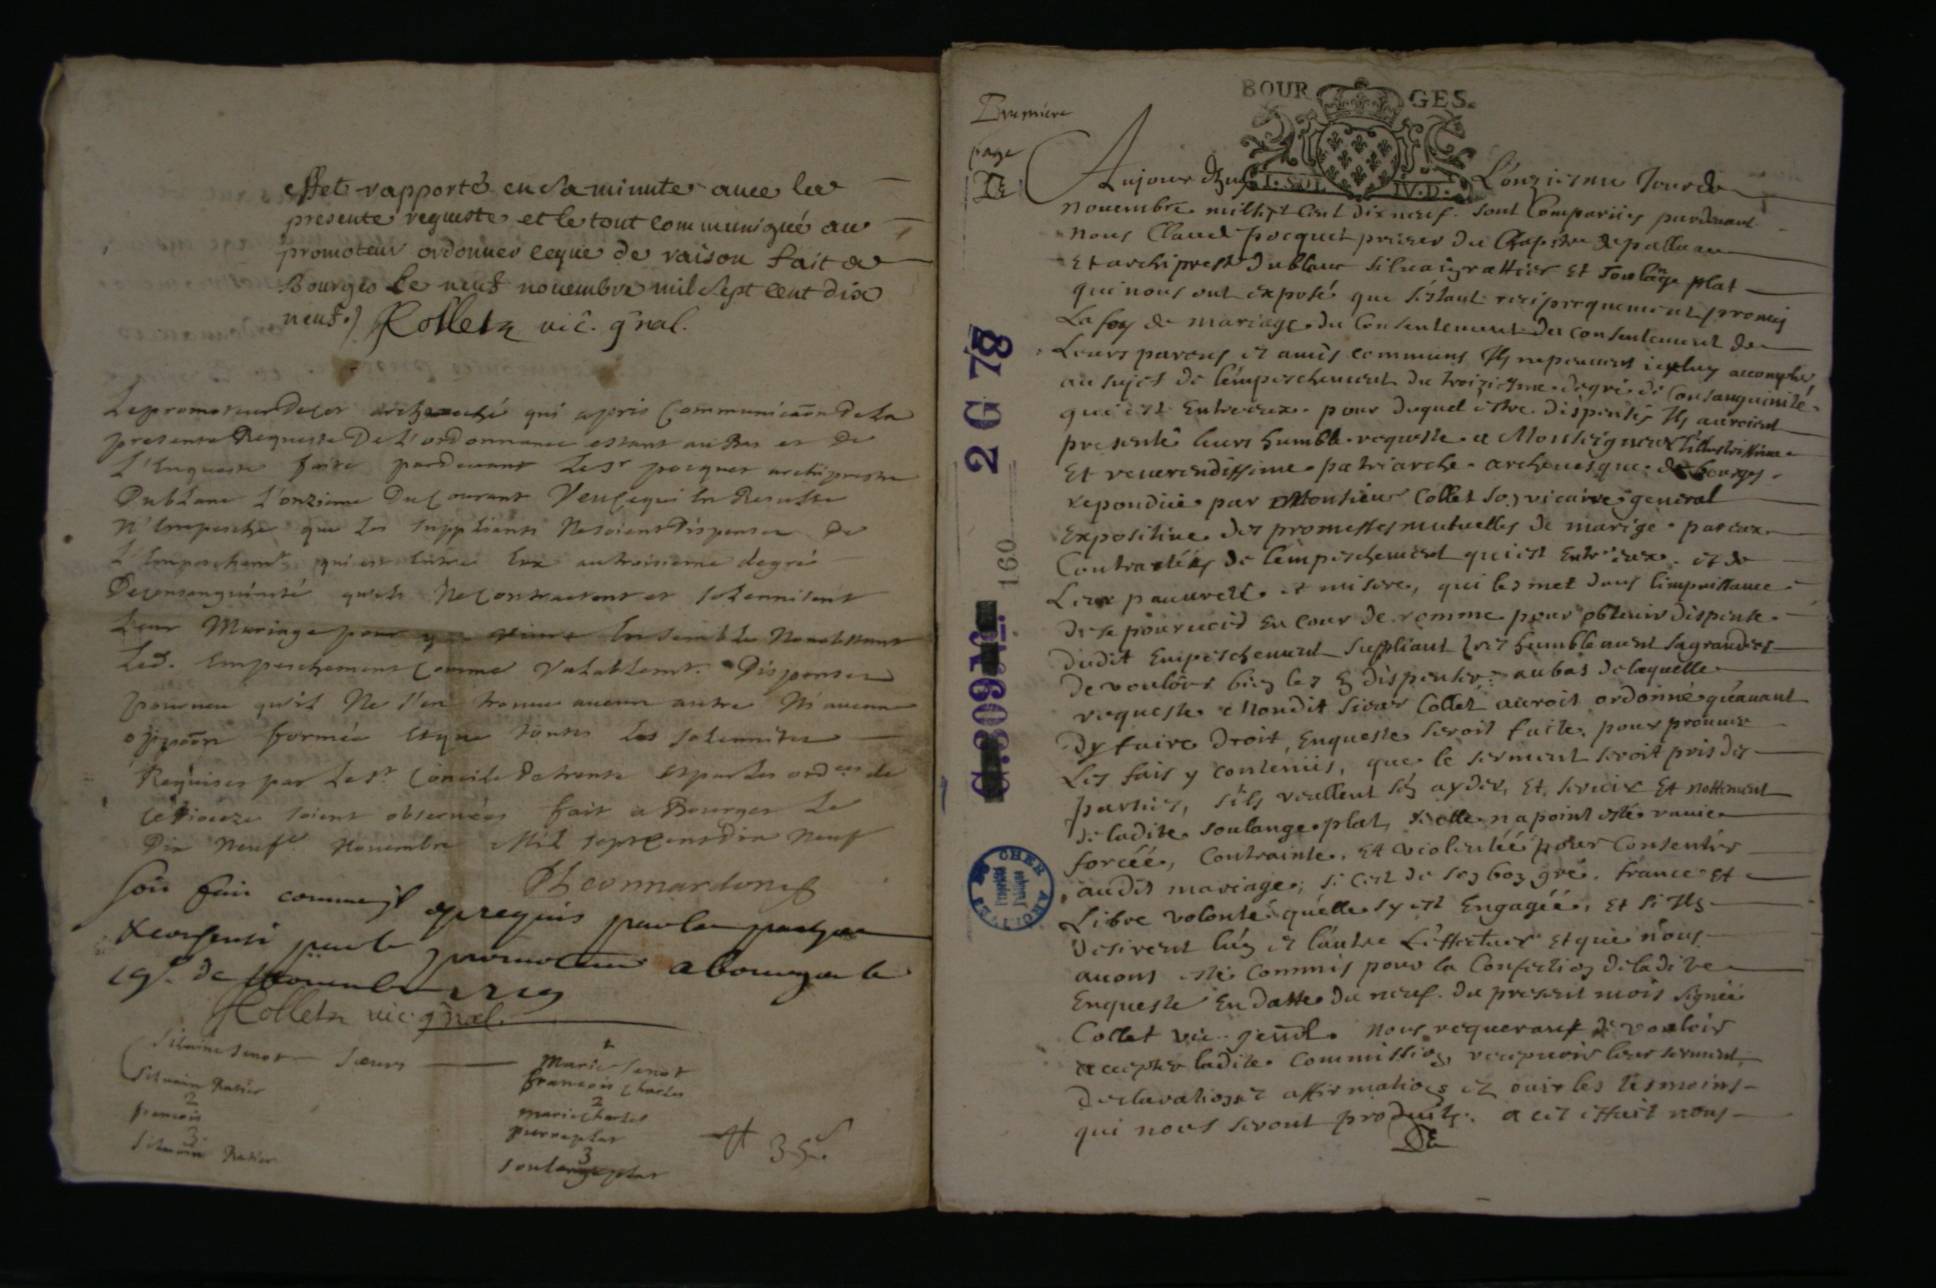 effet rapporté en sa minute avec la
presente requeste et le tout communiqué au
promoteur ordonner ce que de raison fait a
Bourges le neuf novembre mil sept cent dix
neuf.) Collet vic. gnal.
Le promoteur De cet archevesché qui a pris Communicaon De la
presente Requeste De L'ordonnance estant au Bas et de
L'Enqueste faite pardevant Le Sr pocquet archiprestre
Du blanc L'onzieme Du Courant Veu ce qui En Resulte
N'Empesche que les suppliants Ne soient Dispensez De
L'Empeschemt qui est Entre Eux au troisieme degré
De consanguinité qu'ils Ne Contractent et solennisent
Leur Mariage Nonobstant
Led. Empeschement Comme Valablemt Dispensez
pourveu qu'il Ne s'en trouve aucun autre Ni aucune
oppoon formée Et que toutes Les solennitez
Requises par Le St Concile De trente Et par les ordces de
Ce Dioceze soient observées fait a Bourges Le
Dix Neufe Novembre Mil sept Cens Dix Neuf
soit fait comme il est requis par la partye
& consenti par le promoteur a bourges le
19e de Novembre 1719
Collet vic gnal.
Silvine Senot Sœurs
1
Marie Senot
Silvain Ratier
françois Charles
2
françois
2
marie Charles
pierre plat
3
Silvain Ratier
3
soulange plat
35s
Premiere
page
BOUR GES.
Aujourdhuy L'onziesme Jour de
novembre mil sept Cent dix neuf. sont Comparües pardevant
nous Claude pocquet prieur du Chapitre de palluau
Et archiprestre du blanc silvain rattier Et Soulange plat
qui nous ont exposé que s'estant reciproquement promis
La foy de mariage du Consentement du consentement de
Leurs parens et amis communs Ils ne peuvent iceluy accomplir
au sujet de l'empeschement du troiziesme degré de Consanguinité
qui est Entre eux pour duquel estre dispensés Ils auroient
presenté leurs humble requeste a Monseigneur L'illustrissime
Et reverendissime patriarche archevesque de bourges
repondüe par Monsieur Collet son vicaire general
Expositive des promesses mutuelles de mariage par eux
Contractées de l'empeschement qui est Entre eux et de
Leur pauvreté et misere, qui les met dans l'impuissance
de se pourvoir En cour de romme pour obtenir dispense
dudit Empeschement suppliant tres humblement sa grandeur
de vouloir bien les En dispenser au bas de laquelle
requeste Mondit sieur Collet auroit ordonné qu'avant
dy faire droit, Enqueste seroit faite pour prouver
Les fais y contenüs, que le serment seroit pris des
parties, s'ils veullent s'en ayder, Et servir Et nottement
de ladite soulange plat, si elle na point esté ravie
forcée, Contrainte, Et violentée pour Consentir
audit mariage; si c'est de son bon gré, france Et
Libre volonté qu'elle s'y est Engagée, Et si Ils
desirent l'un et l'autre L'effectuer Et que nous
avons esté commis pour la Confection de ladite
Enqueste En datte du neuf du present mois signée
Collet vic. genal. nous requerant de vouloir
accepter ladite Commission, recepvoir leur serment,
declarations et affirmations et ouir les tesmoins
qui nous seront produits. a cet effait nous
2 G 78
160
CHER